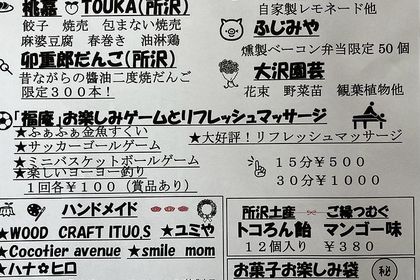 桃嘉 TOUKA(所沢)
餃子 焼売 包まない焼売
麻婆豆腐 春巻き 油淋鶏
卯重郎だんご(所沢)
昔ながらの醤油二度焼だんご
限定３００本！
自家製レモネード他
ふじみや
燻製ベーコン弁当限定50個
大沢園芸
花束 野菜苗 観葉植物他
「福庵」お楽しみゲームとリフレッシュマッサージ
★ふぁふぁ金魚すくい
★サッカーゴールゲーム
★ミニバスケットボールゲーム
★楽しいヨーヨー釣り
１回各￥１００（賞品あり）
★大好評！リフレッシュマッサージ
１５分￥５００
３０分￥１０００
ハンドメイド
★WOOD CRAFT ITUO,S ★ユミヤ
★Cocotier avenue ★smile mom
★ハナ✿ヒロ
所沢土産 ご縁つむぐ
トコろん飴 マンゴー味
１２個入り ￥３８０
お菓子お楽しみ袋 ㊙